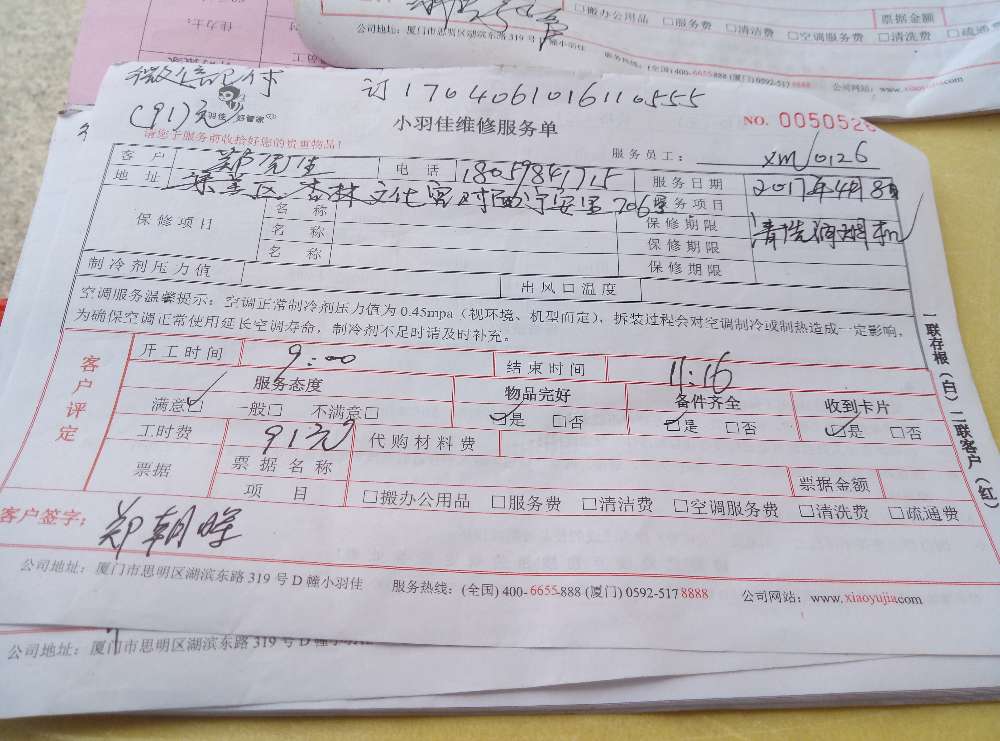 搬办公用品 □服务费 □清洁费 □空调服务费 □清洗费 □疏通
票据金额
公司地址：厦门市思明区湖滨东路 319 号 D 幢小羽佳
服务热线：(全国) 400-6655-888 (厦门) 0592-517
公司网站：www.xiaoyujia
微信已付 订 170406101611 0555
(91)元
羽佳 好管家
NO. 005052
小羽佳维修服务单
请您于服务前收拾好您的贵重物品！
服务员工： xm/0126
客 户 郑先生 电 话 18059841715 服务日期 2017年4月8日
地 址 集美区杏林文化宫对面宁安里706室 服务项目 清洗油烟机
保修项目 名 称 保修期限
名 称 保修期限
名 称 保修期限
制冷剂压力值 出风口温度
空调服务温馨提示：空调正常制冷剂压力值为 0.45mpa（视环境、机型而定），拆装过程会对空调制冷或制热造成一定影响，
为确保空调正常使用延长空调寿命，制冷剂不足时请及时补充。
一联存根（白）二联客户（红）
客户评定
开工时间 9:00 结束时间 11:16
服务态度 物品完好 备件齐全 收到卡片
满意☑ 一般□ 不满意□ ☑是 □否 ☑是 □否 ☑是 □否
工时费 91元 代购材料费
票据 票据名称 票据金额
项 目 □搬办公用品 □服务费 □清洁费 □空调服务费 □清洗费 □疏通费
客户签字： 郑朝晖
公司地址：厦门市思明区湖滨东路 319 号 D 幢小羽佳 服务热线：(全国) 400-6655-888 (厦门) 0592-517 8888 公司网站：www.xiaoyujia.com
公司地址：厦门市思明区湖滨东路 319 号 D 幢小羽佳